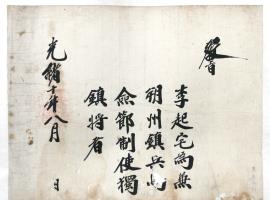 敎旨
李起宅爲兼
朔州鎭兵馬
僉節制使獨
鎭將者
光緖十年八月 日